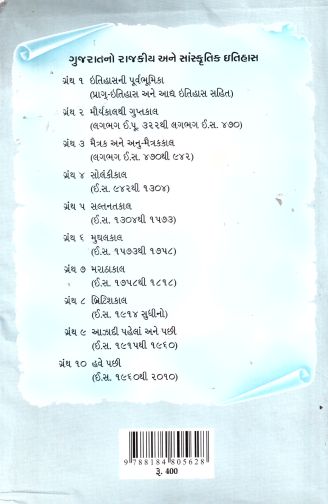 ગુજરાતનો રાજકીય અને સાંસ્કૃતિક ઇતિહાસ
ગ્રંથ ૧ ઇતિહાસની પૂર્વભૂમિકા
(પ્રાગ્-ઇતિહાસ અને આદ્ય ઇતિહાસ સહિત)
ગ્રંથ ૨ મૌર્યકાલથી ગુપ્તકાલ
(લગભગ ઈ.પૂ. ૩૨૨થી લગભગ ઈ.સ. ૪૭૦)
ગ્રંથ ૩ મૈત્રક અને અનુ-મૈત્રકકાલ
(લગભગ ઈ.સ. ૪૭૦થી ૯૪૨)
ગ્રંથ ૪ સોલંકીકાલ
(ઈ.સ. ૯૪૨થી ૧૩૦૪)
ગ્રંથ ૫ સલ્તનતકાલ
(ઈ.સ. ૧૩૦૪થી ૧૫૭૩)
ગ્રંથ ૬ મુઘલકાલ
(ઈ.સ. ૧૫૭૩થી ૧૭૫૮)
ગ્રંથ ૭ મરાઠાકાલ
(ઈ.સ. ૧૭૫૮થી ૧૮૧૮)
ગ્રંથ ૮ બ્રિટિશકાલ
(ઈ.સ. ૧૯૧૪ સુધીનો)
ગ્રંથ ૯ આઝાદી પહેલાં અને પછી
(ઈ.સ. ૧૯૧૫થી ૧૯૬૦)
ગ્રંથ ૧૦ હવે પછી
(ઈ.સ. ૧૯૬૦થી ૨૦૧૦)
9 788184 805628
રૂ. 400